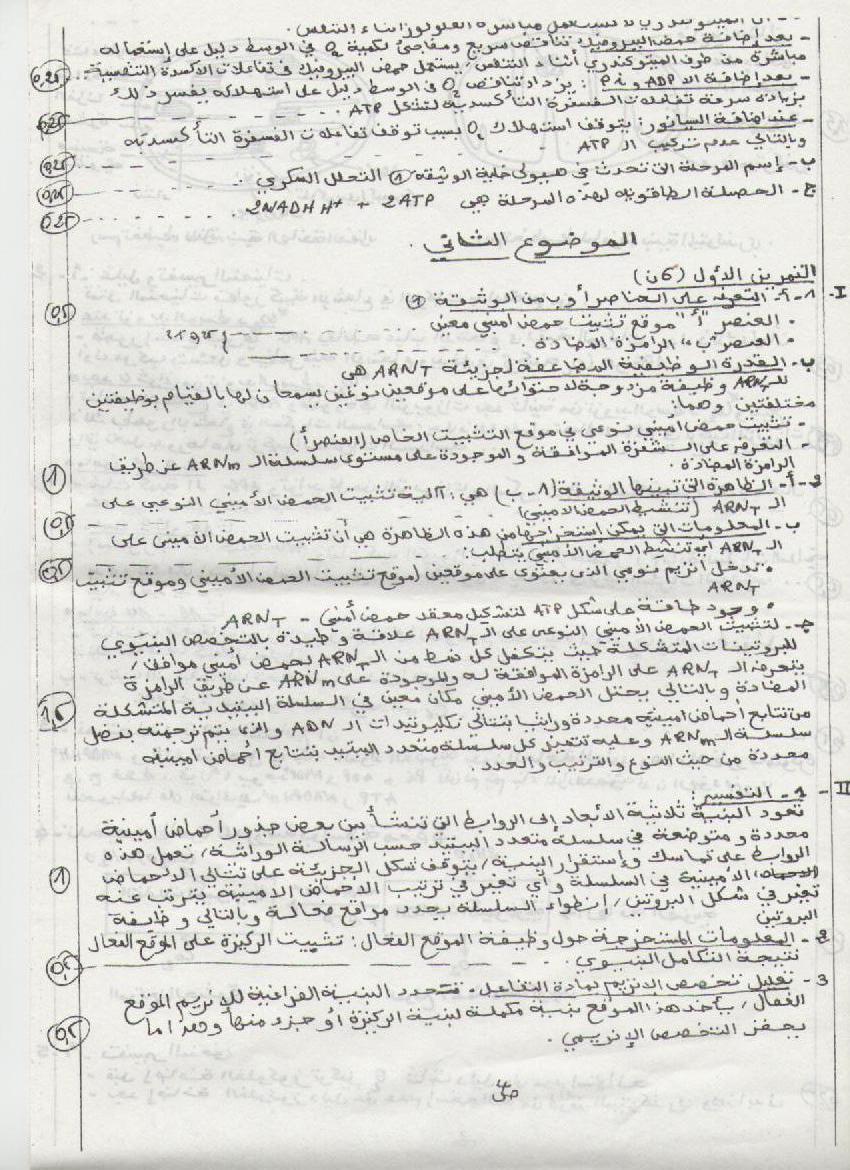 - بعد إضافة حمض البيروفيك تناقص سريع ومفاجئ لكمية O₂ في الوسط دليل على إستعماله
مباشرة من طرف الميتوكندري أثناء التنفس. يستعمل حمض البيروفيك في تفاعلات الأكسدة التنفسية
0,25
- بعد إضافة الـ ADP و Pi : يزداد تناقص O₂ في الوسط دليل على استهلاكه يفسر ذلك
بزيادة سرعة تفاعلات الفسفرة التأكسدية لتشكل ATP
0,25
- عند إضافة السيانور: يتوقف استهلاك O₂ بسبب توقف تفاعلات الفسفرة التأكسدية
وبالتالي عدم تركيب الـ ATP
0,25
ب- إسم المرحلة التي تحدث في هيولى خلية الوثيقة 1 التحلل السكري
0,25
ج- الحصيلة الطاقوية لهذه المرحلة هي 2NADH H⁺ + 2ATP
0,25
الموضوع الثاني.
التمرين الأول (6ن)
I- 1- أ- التعرف على العناصر أ و ب من الوثيقة (1)
0,5
. العنصر "أ" موقع تثبيت حمض أميني معين
. العنصر "ب" الرامزة المضادة 2×0,25
ب- القدرة الوظيفية المضاعفة لجزيئة ARNT هي
للـ ARNT وظيفة مزدوجة لاحتوائها على موقعين نوعيين يسمحان لها بالقيام بوظيفتين
مختلفتين وهما:
- تثبيت حمض أميني نوعي في موقع التثبيت الخاص (العنصر أ)
- التعرف على الشفرة الموافقة والموجودة على مستوى سلسلة الـ ARNm عن طريق
الرامزة المضادة.
1
2- أ- الظاهرة التي تبينها الوثيقة (1- ب) هي: آلية تثبيت الحمض الأميني النوعي على
الـ ARNT (تنشيط الحمض الأميني)
0,5
ب- المعلومات التي يمكن استخراجها من هذه الظاهرة هي أن تثبيت الحمض الأميني على
الـ ARNT أي تنشيط الحمض الأميني يتطلب:
• تدخل أنزيم نوعي الذي يحتوي على موقعين (موقع تثبيت الحمض الأميني وموقع تثبيت
ARNT
0,5
• وجود طاقة على شكل ATP لتشكيل معقد حمض أميني - ARNT
ج- لتثبيت الحمض الأميني النوعي على الـ ARNT علاقة وطيدة بالتخصص البنيوي
للبروتينات المتشكلة حيث يتكفل كل نمط من الـ ARNT لحمض أميني موافق،
يتعرف الـ ARNT على الرامزة الموافقة له والموجودة على ARNm عن طريق الرامزة
المضادة وبالتالي يحتل الحمض الأميني مكان معين في السلسلة الببتيدية المتشكلة
1,5
من تتابع أحماض أمينية محددة وراثيا بتتالي نكليوتيدات الـ ADN والذي يتم ترجمته بفضل
سلسلة الـ ARNm وعليه تتميز كل سلسلة متعدد الببتيد بتتابع أحماض أمينية
محددة من حيث النوع والترتيب والعدد.
II- 1- التفسير:
تعود البنية ثلاثية الأبعاد إلى الروابط التي تنشأ بين بعض جذور أحماض أمينية
محددة و متوضعة في سلسلة متعدد الببتيد حسب الرسالة الوراثية، تعمل هذه
الروابط على تماسك وإستقرار البنية، يتوقف شكل الجزيئة على تتالي الأحماض
1
الأمينية في السلسلة وأي تغير في ترتيب الأحماض الأمينية يترتب عنه
تغير في شكل البروتين، إنطواء السلسلة يحدد مواقع فعالة وبالتالي وظيفة
البروتين
2- المعلومات المستخرجة حول وظيفة الموقع الفعال: تثبيت الركيزة على الموقع الفعال
نتيجة التكامل البنيوي.
0,5
3- تعليل تخصص الانزيم بمادة التفاعل. تتحدد البنية الفراغية للإنزيم الموقع
الفعال، يأخذ هذا الموقع بنية مكملة لبنية الركيزة أو جزء منها وهذا ما
يحفز التخصص الإنزيمي.
0,5
ص4